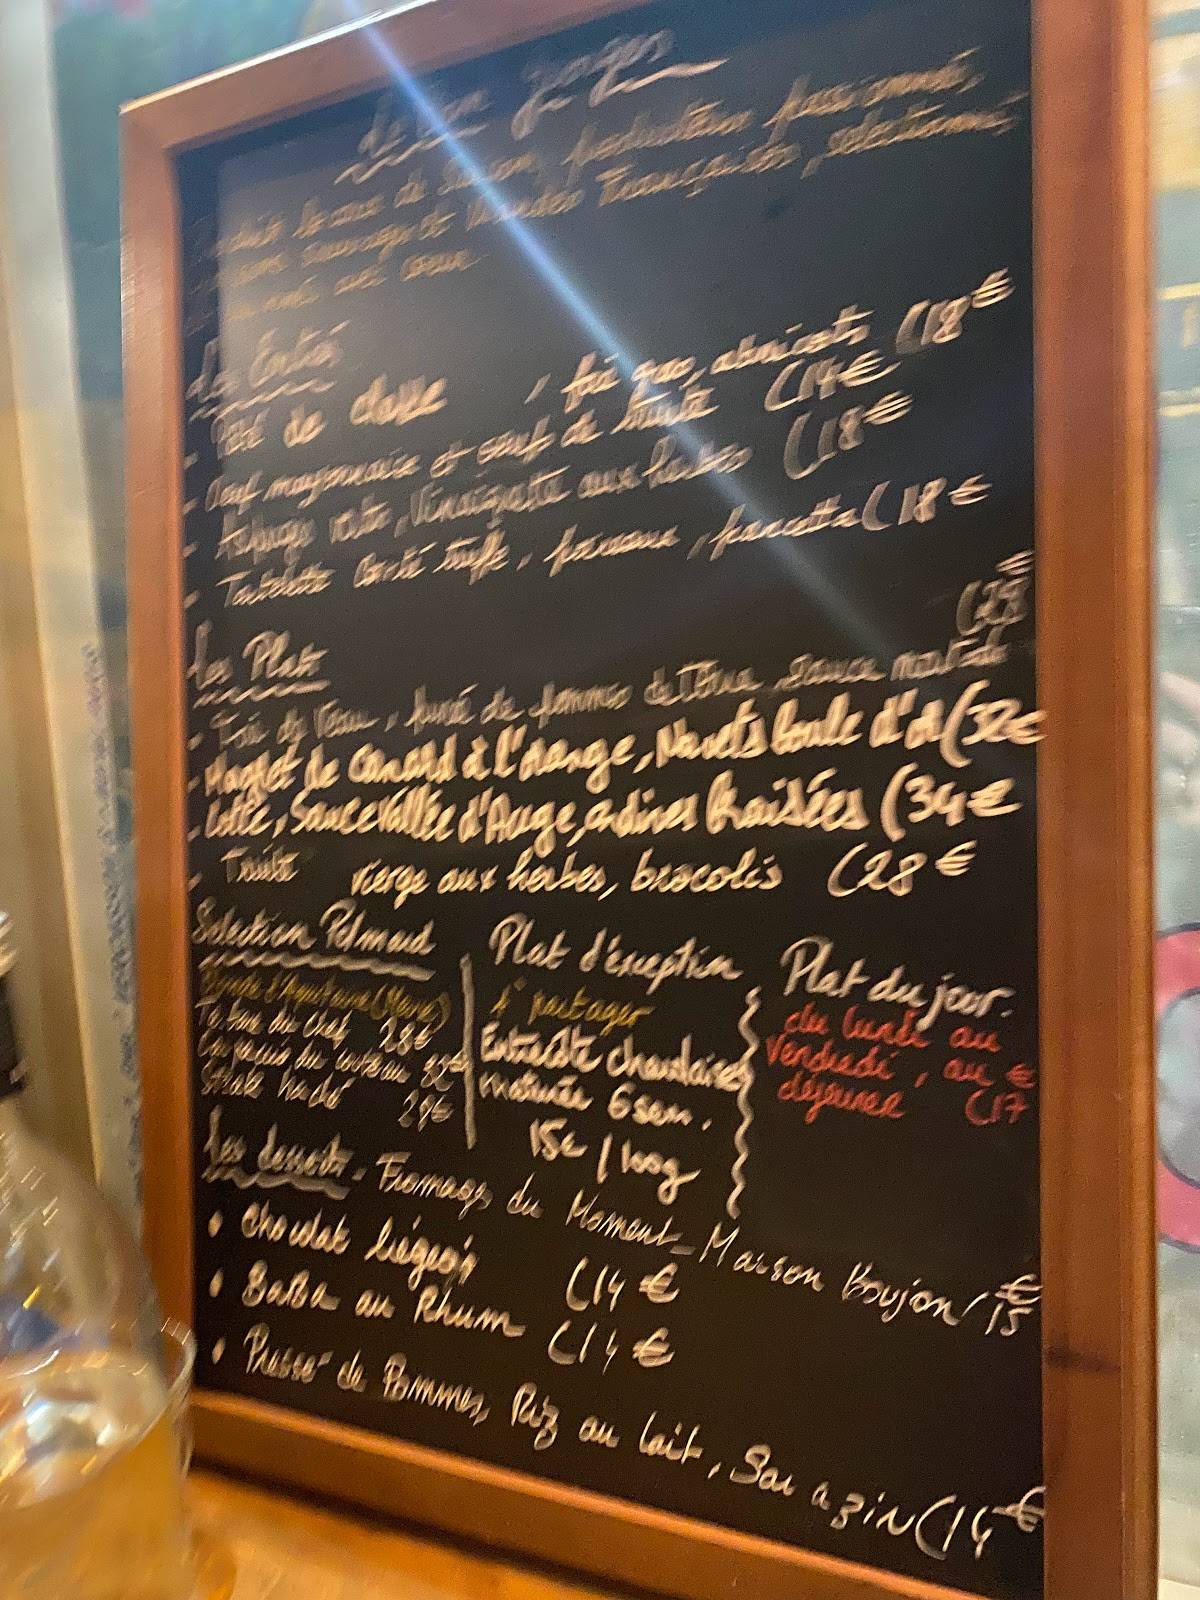 Le Bon Georges
de saison, producteurs passionnés,
sauvages et viandes Françaises, sélectionnés
avec coeur
Les Entrées
- Pâté de classe, foie gras, abricots (18€
- Oeuf mayonnaise et oeufs de truite (14€
- Asperges, vinaigrette aux herbes (18€
- Tartelette Comté truffé, pancetta (18€
Les Plats
(29€
- Foie de Veau, purée de pommes de Terre, sauce moutarde
- Magret de canard à l'orange, Navets boule d'or (32€
- Lotte, Sauce Vallée d'Auge, endives braisées (34€
- Truite vierge aux herbes, brocolis (28€
Sélection Polmard
Blonde d'Aquitaine
Tartare du chef 28€
du couteau
Steak haché 29€
Plat d'éxception
à partager
Entrecôte
maturée 6 sem.
15€/100g
Plat du jour.
du lundi au
Vendredi, au
déjeuner (17€
Les desserts - Fromages du Moment - Maison Boujon (15€
• Chocolat liégeois (14€
• BaBa au Rhum (14€
• Pressé de Pommes, Riz au lait, Sarazin (14€